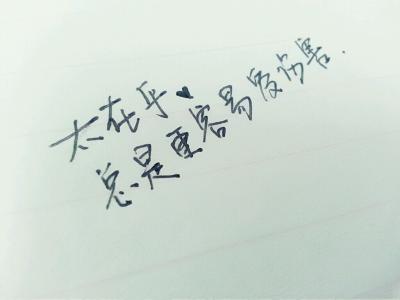 太在乎❥
总是更容易受伤害.